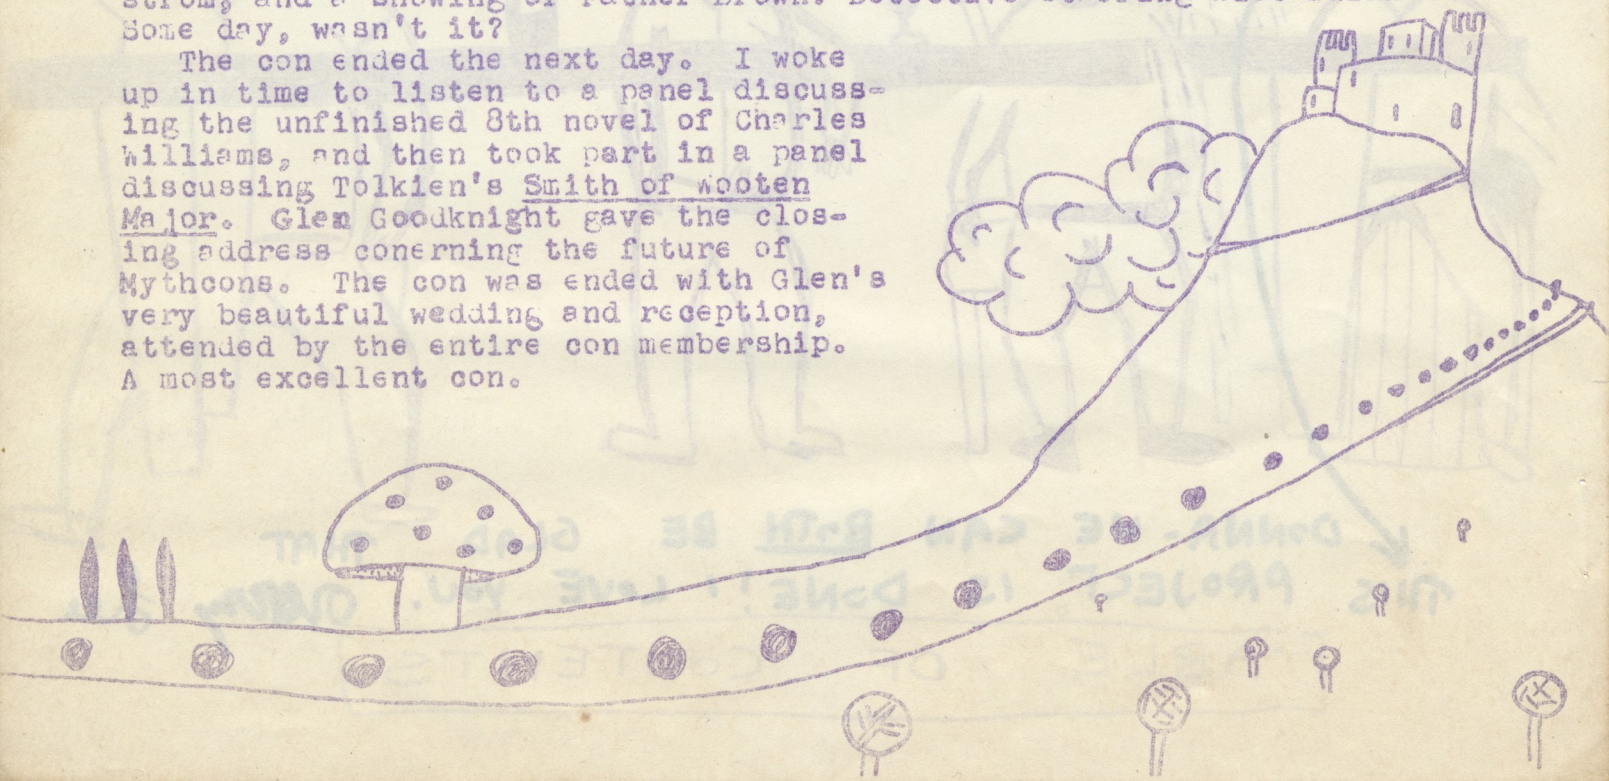 Some day, wasn't it?
The con ended the next day. I woke
up in time to listen to a panel discuss-
ing the unfinished 8th novel of Charles
Williams, and then took part in a panel
discussing Tolkien's Smith of Wooten
Major. Glen Goodknight gave the clos-
ing address conerning the future of
Mythcons. The con was ended with Glen's
very beautiful wedding and reception,
attended by the entire con membership.
A most excellent con.